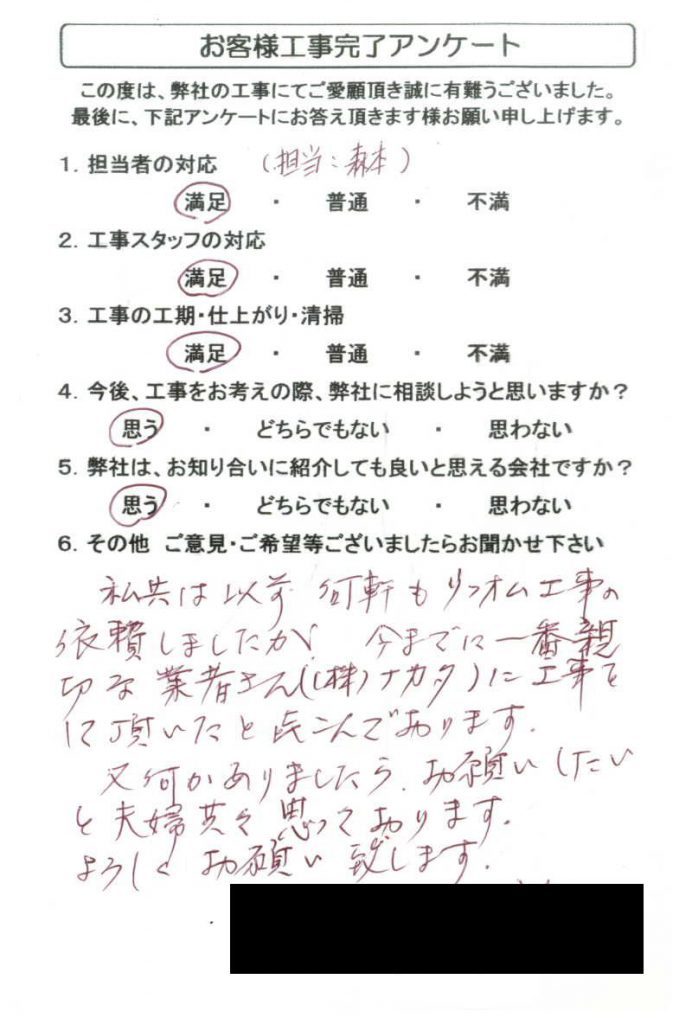 お客様工事完了アンケート
この度は、弊社の工事にてご愛顧頂き誠に有難うございました。
最後に、下記アンケートにお答え頂きます様お願い申し上げます。
1. 担当者の対応 (担当:森本)
満足 ・ 普通 ・ 不満
2. 工事スタッフの対応
満足 ・ 普通 ・ 不満
3. 工事の工期・仕上がり・清掃
満足 ・ 普通 ・ 不満
4. 今後、工事をお考えの際、弊社に相談しようと思いますか?
思う ・ どちらでもない ・ 思わない
5. 弊社は、お知り合いに紹介しても良いと思える会社ですか?
思う ・ どちらでもない ・ 思わない
6. その他 ご意見・ご希望等ございましたらお聞かせ下さい
私共は以前 何軒もリフオム工事の
依頼しましたが、今までに一番親
切な業者さん((株)ナカタ)に工事を
して頂いたと喜こんでおります.
又何かありましたら、お願いしたい
と夫婦共々思っております.
よろしくお願い致します.